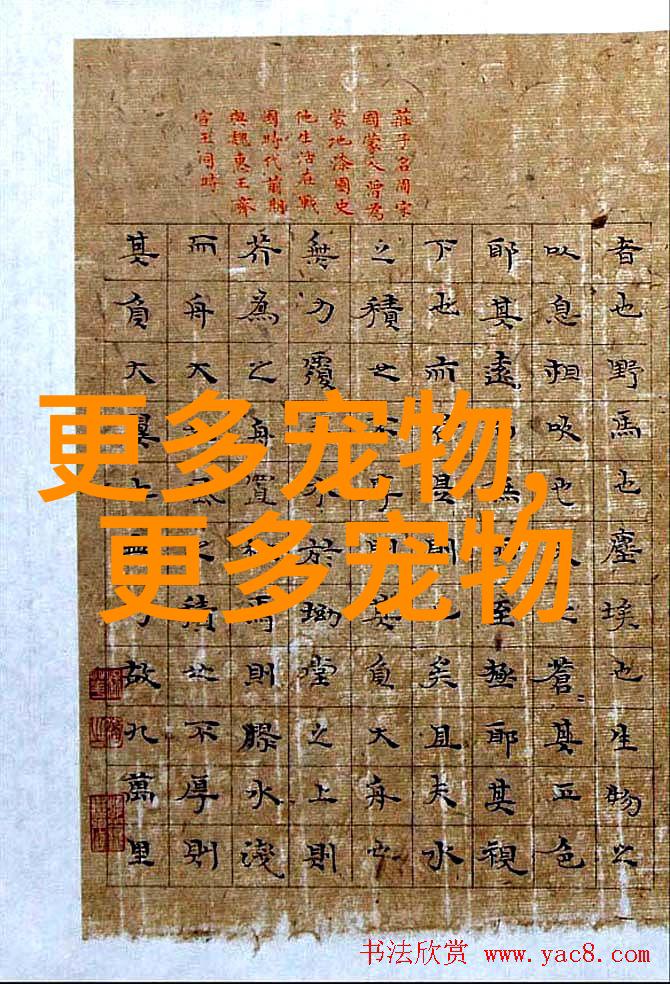 莊子名周宋
國蒙人曾為
蒙地漆園史
他生活在戰
國時代前期
與魏惠王齊
宣王同時
者也野馬也塵埃也生物之
以息相吹也天之蒼〻其正色
耶其遠而無所至極耶其視
下也而是則已矣且夫水
之積也不厚則其負大舟也
無力覆水於坳堂之上則
芥為之舟置杯焉則膠水淺
而舟大也風之積也不厚則
其負大翼也無力故九萬里
更多宠物,
更多宠物
书法欣赏 www.yac8.com